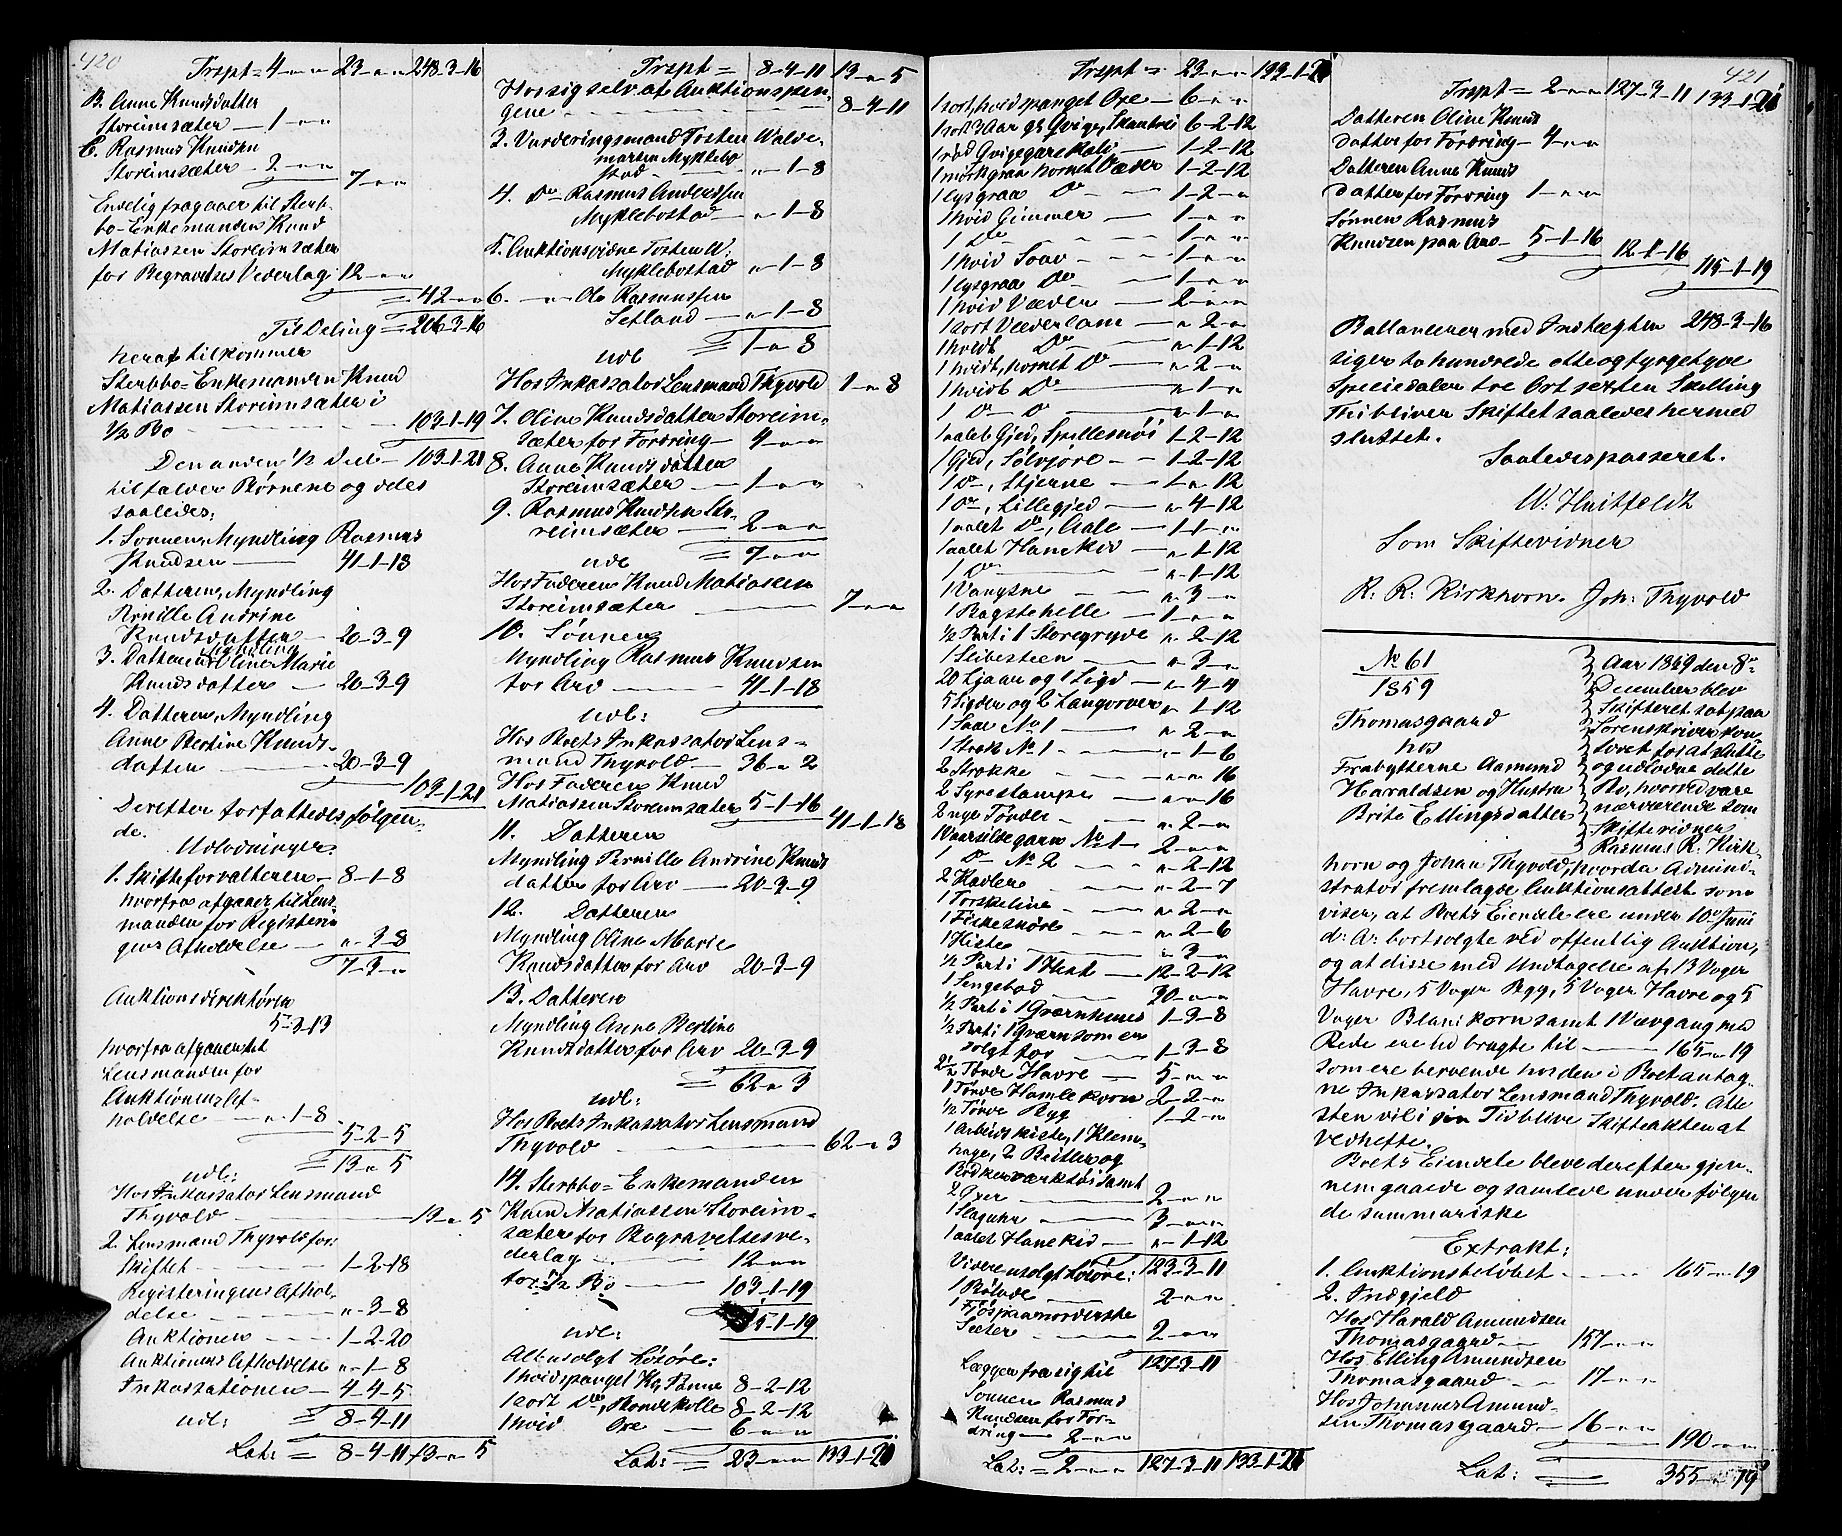 420
Trspt = 4 - " - " 23 - " - " 248-3-16
B. Anne Knudsdatter
Storeimsæter — 1 - " - "
C. Rasmus Knudsen
Storeimsæter — 2 - " - "
7 - " - "
Endelig fragaaer til Sterb-
bo-Enkemanden Knud
Matiassen Storeimsæter
for Begravelses Vederlag 12 - " - "
= 42 - " - "
Til Deling = 206-3-16
heraf tilkommer
Sterbbo-Enkemanden Knud
Matiassen Storeimsæter i
1/2 Bo - - - 103-1-19
Den anden 1/2 Deel — 103-1-21
tilfalder Børnene og deles
saaledes:
1. Sønnen, Myndling Rasmus
Knudsen — 41-1-18
2. Datteren, Myndling
Pernille Andrine
Knudsdatter — 20-3-9
3. Datteren Myndling Oline Marie
Knudsdatter — 20-3-9
4. Datteren, Myndling
Anne Bertine Knuds-
datter — 20-3-9
103-1-21
Derefter forfattedes følgen-
de.
Udlodninger:
1. Skifteforvalteren — 8-1-8
hvorfra afgaaer til Lens-
manden for Registerin
gens Afholdelse — " -3-8
7-3- "
Auktionsdirektøren
5-3-13
hvorfra afgaaer til
Lensmanden for
Auktionens Af-
holdelse — " -1-8
5-2-5
= 13- " -5
udl:
Hos Inkassator Lensmand
Thyvold — 13- " -5
2. Lensmand Thyvold for:
Skiftet - - - 1-2-18
Registeringens Afhol-
delse — " -3-8
Auktionen - - - 1-2-20
Auktionens Afholdelse " -1-8
Inkassationen — 4-4-5
udl: = 8-4-11
Lat: = 8-4-11 13- " -5
Trspt = 8-4-11 13- " -5
Hos sig selv af Auktionspen-
gene - - - 8-4-11
3. Vurderingsmand Tosten Walde-
marsen Myklebo
stad — " -1-8
4. Do Rasmus Anderssen
Myklebostad — " -1-8
5. Auktionsvidne Tosten W.
Myklebostad " -1-8
6. — " — Ole Rasmussen
Setland — " -1-8
udl = 1- " -8
Hos Inkassator Lensmand Thyvold 1- " -8
7. Oline Knudsdatter Storeim-
sæter for Fordring — 4 - " - "
8. Anne Knudsdatter
Storeimsæter — 1 - " - "
9. Rasmus Knudsen Sto-
reimsæter — 2 - " - "
udl = 7 - " - "
Hos Faderen Knud Matiassen
Storeimsæter — 7 - " - "
10. Sønnen
Myndling Rasmus Knudsen
for Arv — 41-1-18
udl:
Hos Boets Inkassator Lens-
mand Thyvold — 36- " -2
Hos Faderen Knud
Matiassen Storeimsæter 5-1-16
41-1-18
11. Datteren
Myndling Pernille Andrine Knuds
datter for Arv — 20-3-9
12. Datteren
Myndling Oline Marie
Knudsdatter for Arv 20-3-9
13. Datteren
Myndling Anne Bertine
Knudsdatter for Arv 20-3-9
= 62- " -3
udl:
Hos Boets Inkassator Lensmand
Thyvold — 62- " -3
14. Sterbbo-Enkemanden
Knud Matiassen Storeim-
sæter for Begravelsesve-
derlag - - 12 - " - "
for 1/2 Bo — 103-1-19
5-1-19
udl:
Af usolgt Løsøre:
1 hvidspanget Kg, Panne 8-2-12
1 sort Do, Skondekolle 8-2-12
1 hvid Oxe — 6 - " - "
Lat: = 23 - " - " 133-1-21
421
Trspt = 23 - " - " 133-1-21
1 sort hvidspanget Oxe — 6 - " - "
1 sort 3 Aar gl Qvige, 6-2-12
1 rød Qvigegare Kalv — 1-2-12
1 mørkgraa hornet Væder 1-2-12
1 lysgraa Do — 1-2- "
1 hvid Gimmer — 1 - " - "
1 Do - - 1 - " - "
1 hvid Sau — 1 - " - "
1 lysgraa Do — 1 - " - "
1 hvid Væder — 2 - " - "
1 sort Væderlam — " -2- "
1 hvidt Do — " -1-12
1 hvidt, hornet Do — " -2- "
1 hvidt Do — " -1- "
1 Do Do — " -1- "
1 aalet Gjed, Spillesnøi 1-2-12
1 Gjed, Sølvjøre — 1-2-12
1 Do, Stjerne — 1- " -12
1 Do, Lillegjed — " -4-12
1 aalet Do, Aale — 1-1- "
1 aalet Hanekid — " -1-12
1 Do — " -1-12
1 Vangsne - - " -3- "
1 Bagstehelle — 1 - " - "
1/2 Part i 1 Storegryde " -2-12
1 Slibesteen — " -3- "
20 Ljaar og 1 Sigd — " -4-4
5 Sigder og 2 Langorver " -1-12
1 Saae No 1 — " -2- "
1 Strok No 1 - - " -1-6
2 Strokke — " - " -16
2 Syrestampe — " - " -16
2 nye Tønder — " -2- "
1 Vaarsildegarn No 1 — 2 - " - "
1 Do No 2 — " -2-12
2 Kavler — " -2-7
1 Torskeline — " -2- "
1 Fiskesnøre — " -2-6
1 Kiste — " -3- "
1/2 Part i 1 Hest — 12-2-12
1 Sengebod — 30 - " - "
1/2 Part i 1 Qværnhuus 1-3-8
1/2 Part i 1 Qværn som er
solgt for — 1-3-8
2 1/2 Tønde Havre — 5 - " - "
1 Tønde Hamlekorn 2-2- "
1/2 Tønde Byg — 1-2- "
1 Arbeidskiste, 1 Klem-
hage, 2 Beitler og
Bødkerværktøi samt
2 Øxer — 2 - " - "
1 Slaguhr — 3 - " - "
1 aalet Hanekid — " -1-12
Videre usolgt Løsøre: 123-3-11
1 Rølade — 2 - " - "
1 Fjøs paa nordenske
Sæter — 2 - " - "
127-3-11
Lægger fra sig til
Sønnen Rasmus
Knudsen for For-
dring — 2 - " - "
Lat: = 2 - " - " 127-3-11 133-1-21
Trspt = 2 - " - " 127-3-11 133-1-21
Datteren Oline Knuds
datter for Fordring — 4 - " - "
Datteren Anne Knuds
datter for Fordring 1 - " - "
Sønnen Rasmus
Knudsen paa Arv — 5-1-16
12-1-16
115-1-19
Ballancerer med Indtægten 248-3-16
siger to hundrede otte og fyrgetyve
Speciedaler tre Ort sexten Skilling
Thi bliver Skiftet saaledes hermed
sluttet.
Saaledes passeret.
W. Huitfeldt
Som Skiftevidner
R. R. Kirkhorn. Joh: Thyvold
No 61
1859
Thomasgaard
hos
Frabytterne Aamund
Haraldsen og Hustru
Brite Ellingsdatter
Aar 1869 den 8de
December blev
Skifteret sat paa
Sorenskriverkon-
toret for at slutte
og udlodde dette
Bo, hvorved vare
nærværende som
Skiftevidner
Rasmus R. Kirk-
horn og Johan Thyvold, hvorda Admini-
strator fremlagde Auktionsattest som
viser, at Boets Eiendele ere under 10de Juni
d: A: bortsolgte ved offentlig Auktion,
og at disse med Undtagelse af 13 Voger
Havre, 5 Voger Byg, 5 Voger Havre og 5
Voger Blandkorn samt 1 Vævgang med
Rede ere udbragte til — 165- " -19
som ere beroende hos den i Boet antag-
ne Inkassator Lensmand Thyvold. Atte
sten vil i sin Tid blive Skifteakten at
vedhefte.
Boets Eiendele bleve derefter gjen-
nemgaaede og samlede under følgen
de summariske
Extrakt:
1. Auktionsbeløbet - - - 165- " -19
2. Indgjeld
Hos Harald Amundsen
Thomasgaard — 157 - " - "
Hos Elling Amundsen
Thomasgaard - - 17 - " - "
Hos Johannes Amund-
sen Thomasgaard — 16 - " - "
190 - " - "
Lat: = 355- " -19